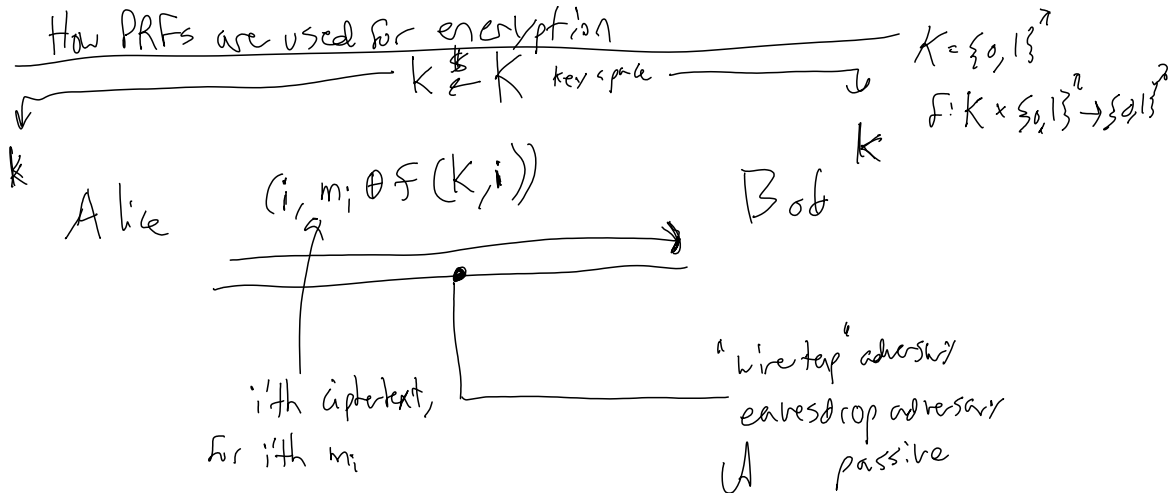 How PRFs are used for encryption
k $← K key space
K = {0,1}^n
f: K × {0,1}^n → {0,1}^n
k
k
Alice
(i, m_i ⊕ f(K,i))
Bob
i'th ciphertext,
for i'th m_i
"wiretap" adversary
eavesdrop adversary
A passive